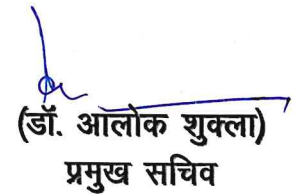 (डॉ. आलोक शुक्ला)
प्रमुख सचिव